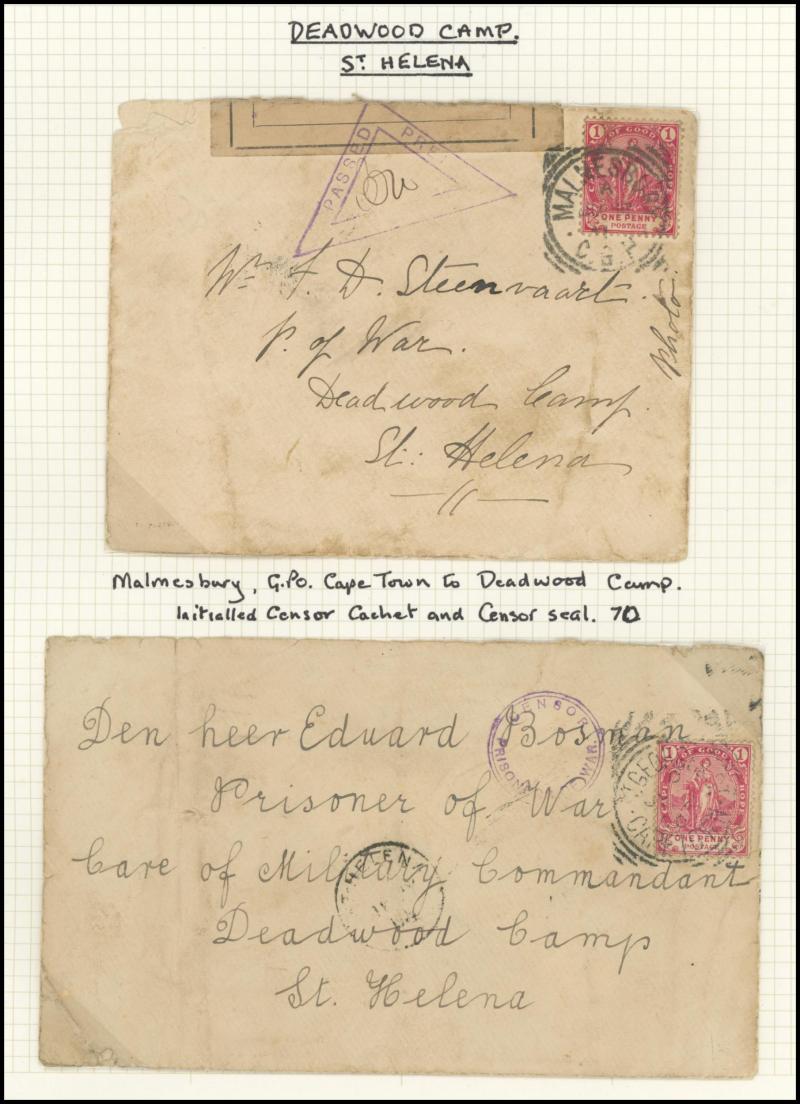 DEADWOOD CAMP.
ST HELENA
PASSED
1 OF GOOD 1
ONE PENNY
POSTAGE
MALMESBURY
Wr. F. D. Steenvaart.
P. of War.
Deadwood Camp.
St. Helena
Photo.
Malmesbury, G.P.O. Cape Town to Deadwood Camp.
Initialled Censor Cachet and Censor seal. 70
CENSOR
PRISON WAR
Den heer Eduard Bosman
1 OF GOOD 1
CAPE HOPE
ONE PENNY
POSTAGE
Prisoner of War
Care of Military Commandant
HELEN
Deadwood Camp
St. Helena